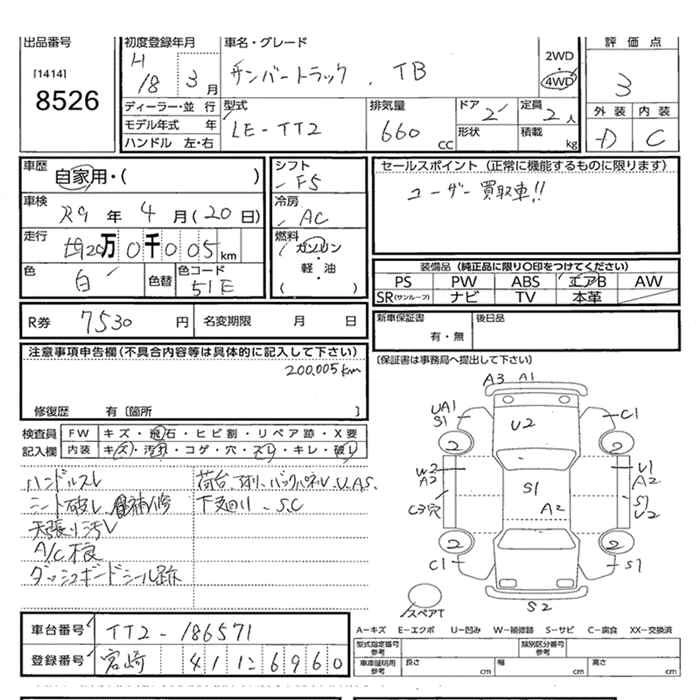 出品番号
[1414]
8526
初度登録年月
H
18 3 月
車名・グレード
サンバートラック . TB
2WD
・
4WD
評価点
3
外装 内装
D C
ディーラー・並行
モデル年式 年
ハンドル 左・右
型式
LE-TT2
排気量
660 CC
ドア 2
定員 2 人
形状
積載 kg
車歴
自家用・( )
車検
R9 年 4 月 (20 日)
走行
20万 0千 005 km
色
白
色替
色コード
51E
シフト
F5
冷房
AC
燃料
ガソリン
・
軽・油
( )
セールスポイント (正常に機能するものに限ります)
ユーザー買取車!!
装備品 (純正品に限り○印をつけてください)
PS PW ABS エアB AW
SR(サンルーフ) ナビ TV 本革
新車保証書
有・無
後日品
(保証書は事務局へ提出して下さい)
R券 7530 円
名変期限 月 日
注意事項申告欄(不具合内容等は具体的に記入して下さい)
200,005km
修復歴 有〔箇所 〕
検査員
記入欄
FW キズ・飛石・ヒビ割・リペア跡・X要
内装 キズ・汚れ・コゲ・穴・スレ・キレ・破レ
ハンドルスレ
シート破レ、補修
天張り汚レ
A/C不良
ダッシュボードシール跡
荷台、アオリ、バックパネルU.A.S.
下廻り、S.C
A3 A1
UA1
S1
U2
C1
2
2
W2
A2
C3穴
S1
A2
U1
A2
S1
U2
2
2
C1
S1
スペアT
S2
A-キズ E-エクボ U-凹み W-補修跡 S-サビ C-腐食 XX-交換済
車台番号 TT2-186571
登録番号 宮崎 41 に 6960
型式指定番号
参考
類別区分番号
参考
車庫証明用
参考
長さ cm
幅 cm
高さ cm